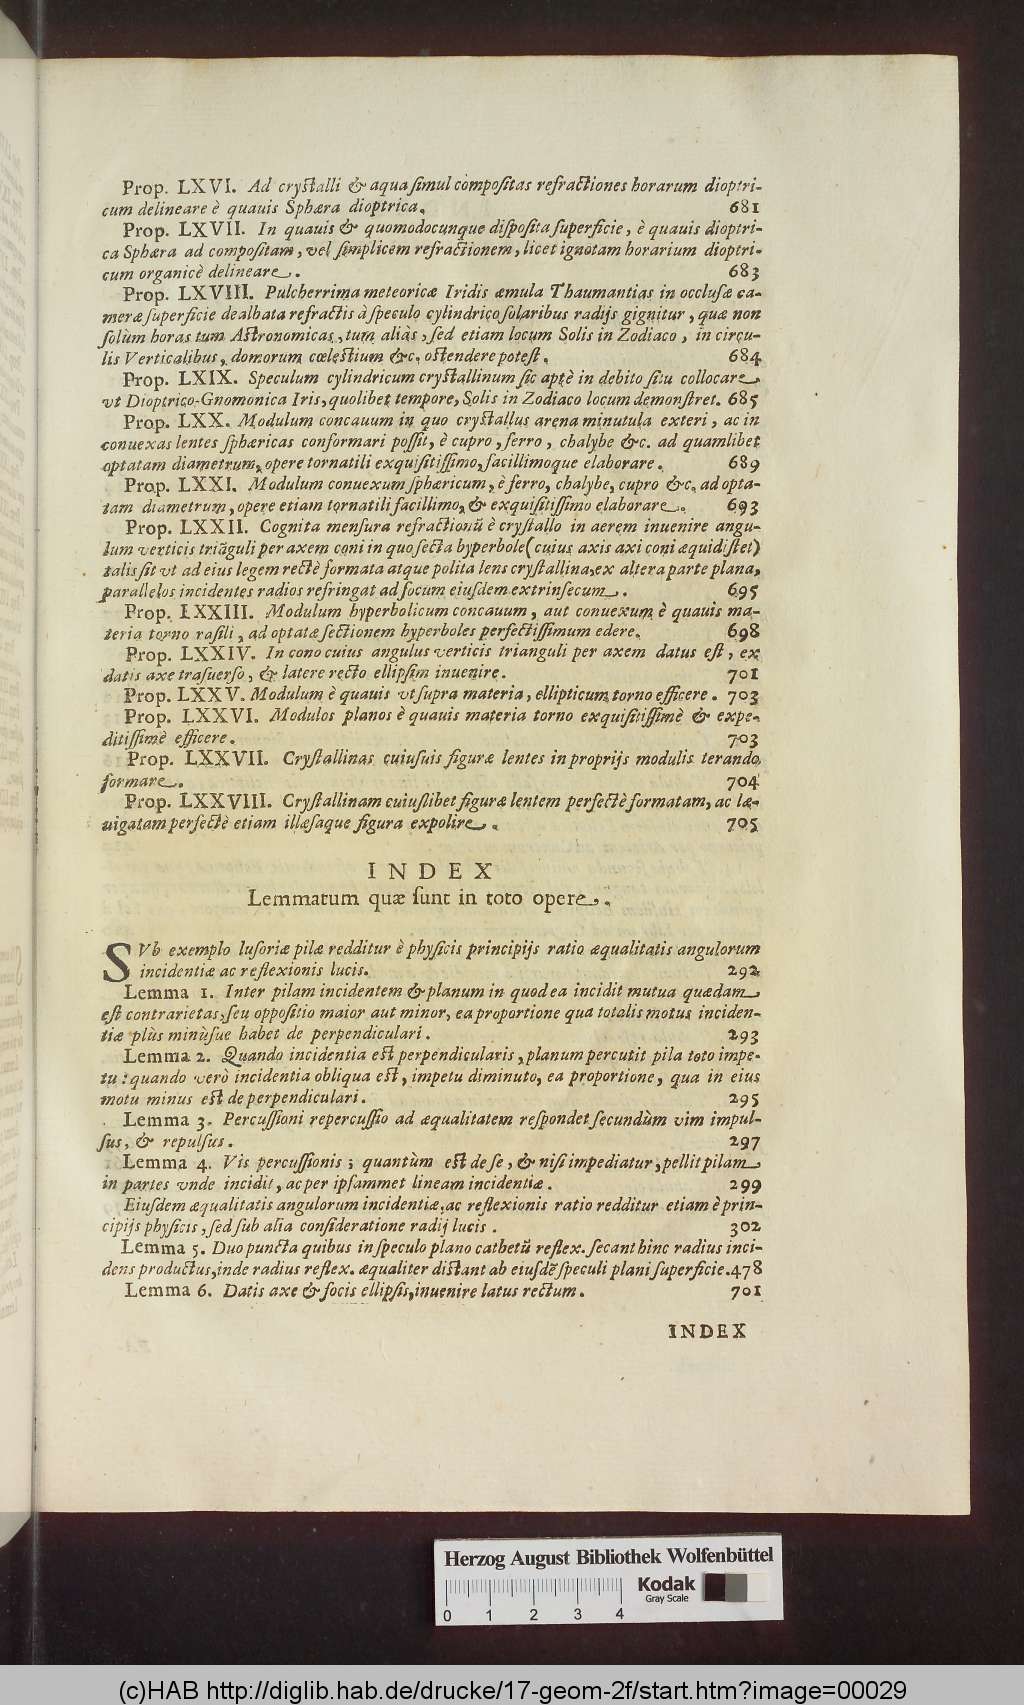 Prop. LXVI. Ad cryſtalli & aqua ſimul compoſitas refractiones horarum dioptri-
cum delineare è quauis Sphæra dioptrica. 681
Prop. LXVII. In quauis & quomodocunque diſpoſita ſuperficie, è quauis dioptri-
ca Sphæra ad compoſitam, vel ſimplicem refractionem, licet ignotam horarium dioptri-
cum organicè delineare. 683
Prop. LXVIII. Pulcherrima meteoricæ Iridis æmula Thaumantias in occluſæ ca-
meræ ſuperficie dealbata refractis à ſpeculo cylindrico ſolaribus radijs gignitur, quæ non
ſolùm horas tum Aſtronomicas, tum aliàs, ſed etiam locum Solis in Zodiaco, in circu-
lis Verticalibus, domorum cœleſtium &c. oſtendere poteſt. 684
Prop. LXIX. Speculum cylindricum cryſtallinum ſic aptè in debito ſitu collocare,
vt Dioptrico-Gnomonica Iris, quolibet tempore, Solis in Zodiaco locum demonſtret. 685
Prop. LXX. Modulum concauum in quo cryſtallus arena minutula exteri, ac in
conuexas lentes ſphæricas conformari poſſit, è cupro, ferro, chalybe &c. ad quamlibet
optatam diametrum, opere tornatili exquiſitiſſimo, facillimoque elaborare. 689
Prop. LXXI. Modulum conuexum ſphæricum, è ferro, chalybe, cupro &c. ad opta-
tam diametrum, opere etiam tornatili facillimo, & exquiſitiſſimo elaborare. 693
Prop. LXXII. Cognita menſura refractionũ è cryſtallo in aerem inuenire angu-
lum verticis triãguli per axem coni in quo ſecta hyperbole (cuius axis axi coni æquidiſtet)
talis ſit vt ad eius legem rectè formata atque polita lens cryſtallina, ex altera parte plana,
parallelos incidentes radios refringat ad focum eiuſdem extrinſecum. 695
Prop. LXXIII. Modulum hyperbolicum concauum, aut conuexum è quauis ma-
teria torno raſili, ad optatæ ſectionem hyperboles perfectiſſimum edere. 698
Prop. LXXIV. In cono cuius angulus verticis trianguli per axem datus eſt, ex
datis axe traſuerſo, & latere recto ellipſim inuenire. 701
Prop. LXXV. Modulum è quauis vt ſupra materia, ellipticum torno efficere. 703
Prop. LXXVI. Modulos planos è quauis materia torno exquiſitiſſimè & expe-
ditiſſimè efficere. 703
Prop. LXXVII. Cryſtallinas cuiuſuis figuræ lentes in proprijs modulis terando
formare. 704
Prop. LXXVIII. Cryſtallinam cuiuſlibet figuræ lentem perfectè formatam, ac læ-
uigatam perfectè etiam illæſaque figura expolire. 705
INDEX
Lemmatum quæ ſunt in toto opere.
SVb exemplo luſoriæ pilæ redditur è phyſicis principijs ratio æqualitatis angulorum
incidentiæ ac reflexionis lucis. 292
Lemma 1. Inter pilam incidentem & planum in quod ea incidit mutua quædam
eſt contrarietas, ſeu oppoſitio maior aut minor, ea proportione qua totalis motus inciden-
tiæ plùs minùſue habet de perpendiculari. 293
Lemma 2. Quando incidentia eſt perpendicularis, planum percutit pila toto impe-
tu: quando verò incidentia obliqua eſt, impetu diminuto, ea proportione, qua in eius
motu minus eſt de perpendiculari. 295
Lemma 3. Percuſſioni repercuſſio ad æqualitatem reſpondet ſecundùm vim impul-
ſus, & repulſus. 297
Lemma 4. Vis percuſſionis; quantùm eſt de ſe, & niſi impediatur, pellit pilam
in partes vnde incidit, ac per ipſammet lineam incidentiæ. 299
Eiuſdem æqualitatis angulorum incidentiæ, ac reflexionis ratio redditur etiam è prin-
cipijs phyſicis, ſed ſub alia conſideratione radij lucis. 302
Lemma 5. Duo puncta quibus in ſpeculo plano cathetũ reflex. ſecant hinc radius inci-
dens productus, inde radius reflex. æqualiter diſtant ab eiuſdẽ ſpeculi plani ſuperficie. 478
Lemma 6. Datis axe & focis ellipſis, inuenire latus rectum. 701
INDEX
Herzog August Bibliothek Wolfenbüttel
Kodak
Gray Scale
0 1 2 3 4
(c)HAB http://diglib.hab.de/drucke/17-geom-2f/start.htm?image=00029